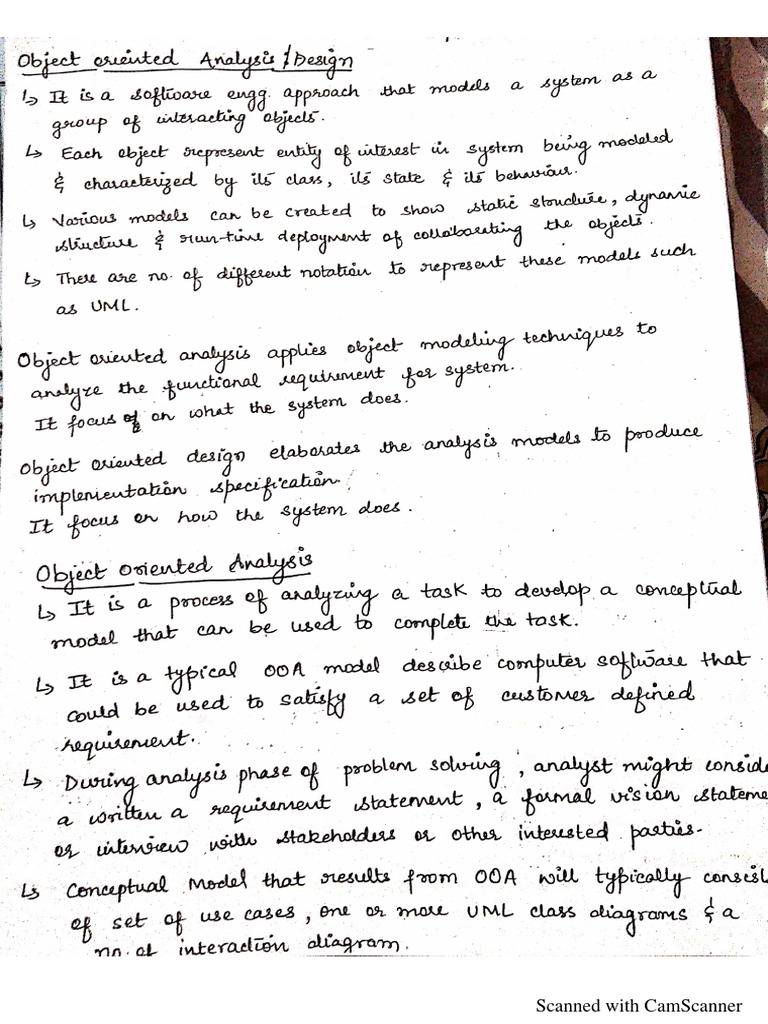 Object oriented Analysis / Design
↳ It is a software engg. approach that models a system as a
group of interacting objects.
↳ Each object represent entity of interest in system being modeled
& characterized by its class, its state & its behaviour.
↳ Various models can be created to show static structure, dynamic
structure & run-time deployment of collaborating the objects.
↳ There are no. of different notation to represent these models such
as UML.
Object oriented analysis applies object modeling techniques to
analyze the functional requirement for system.
It focus on what the system does.
Object oriented design elaborates the analysis models to produce
implementation specification.
It focus on how the system does.
Object Oriented Analysis
↳ It is a process of analyzing a task to develop a conceptual
model that can be used to complete the task.
↳ It is a typical OOA model describe computer software that
could be used to satisfy a set of customer defined
requirement.
↳ During analysis phase of problem solving, analyst might conside
a written a requirement statement, a formal vision stateme
or interview with stakeholders or other interested parties.
↳ Conceptual Model that results from OOA will typically consis
of set of use cases, one or more UML class diagrams & a
no. of interaction diagram.
Scanned with CamScanner